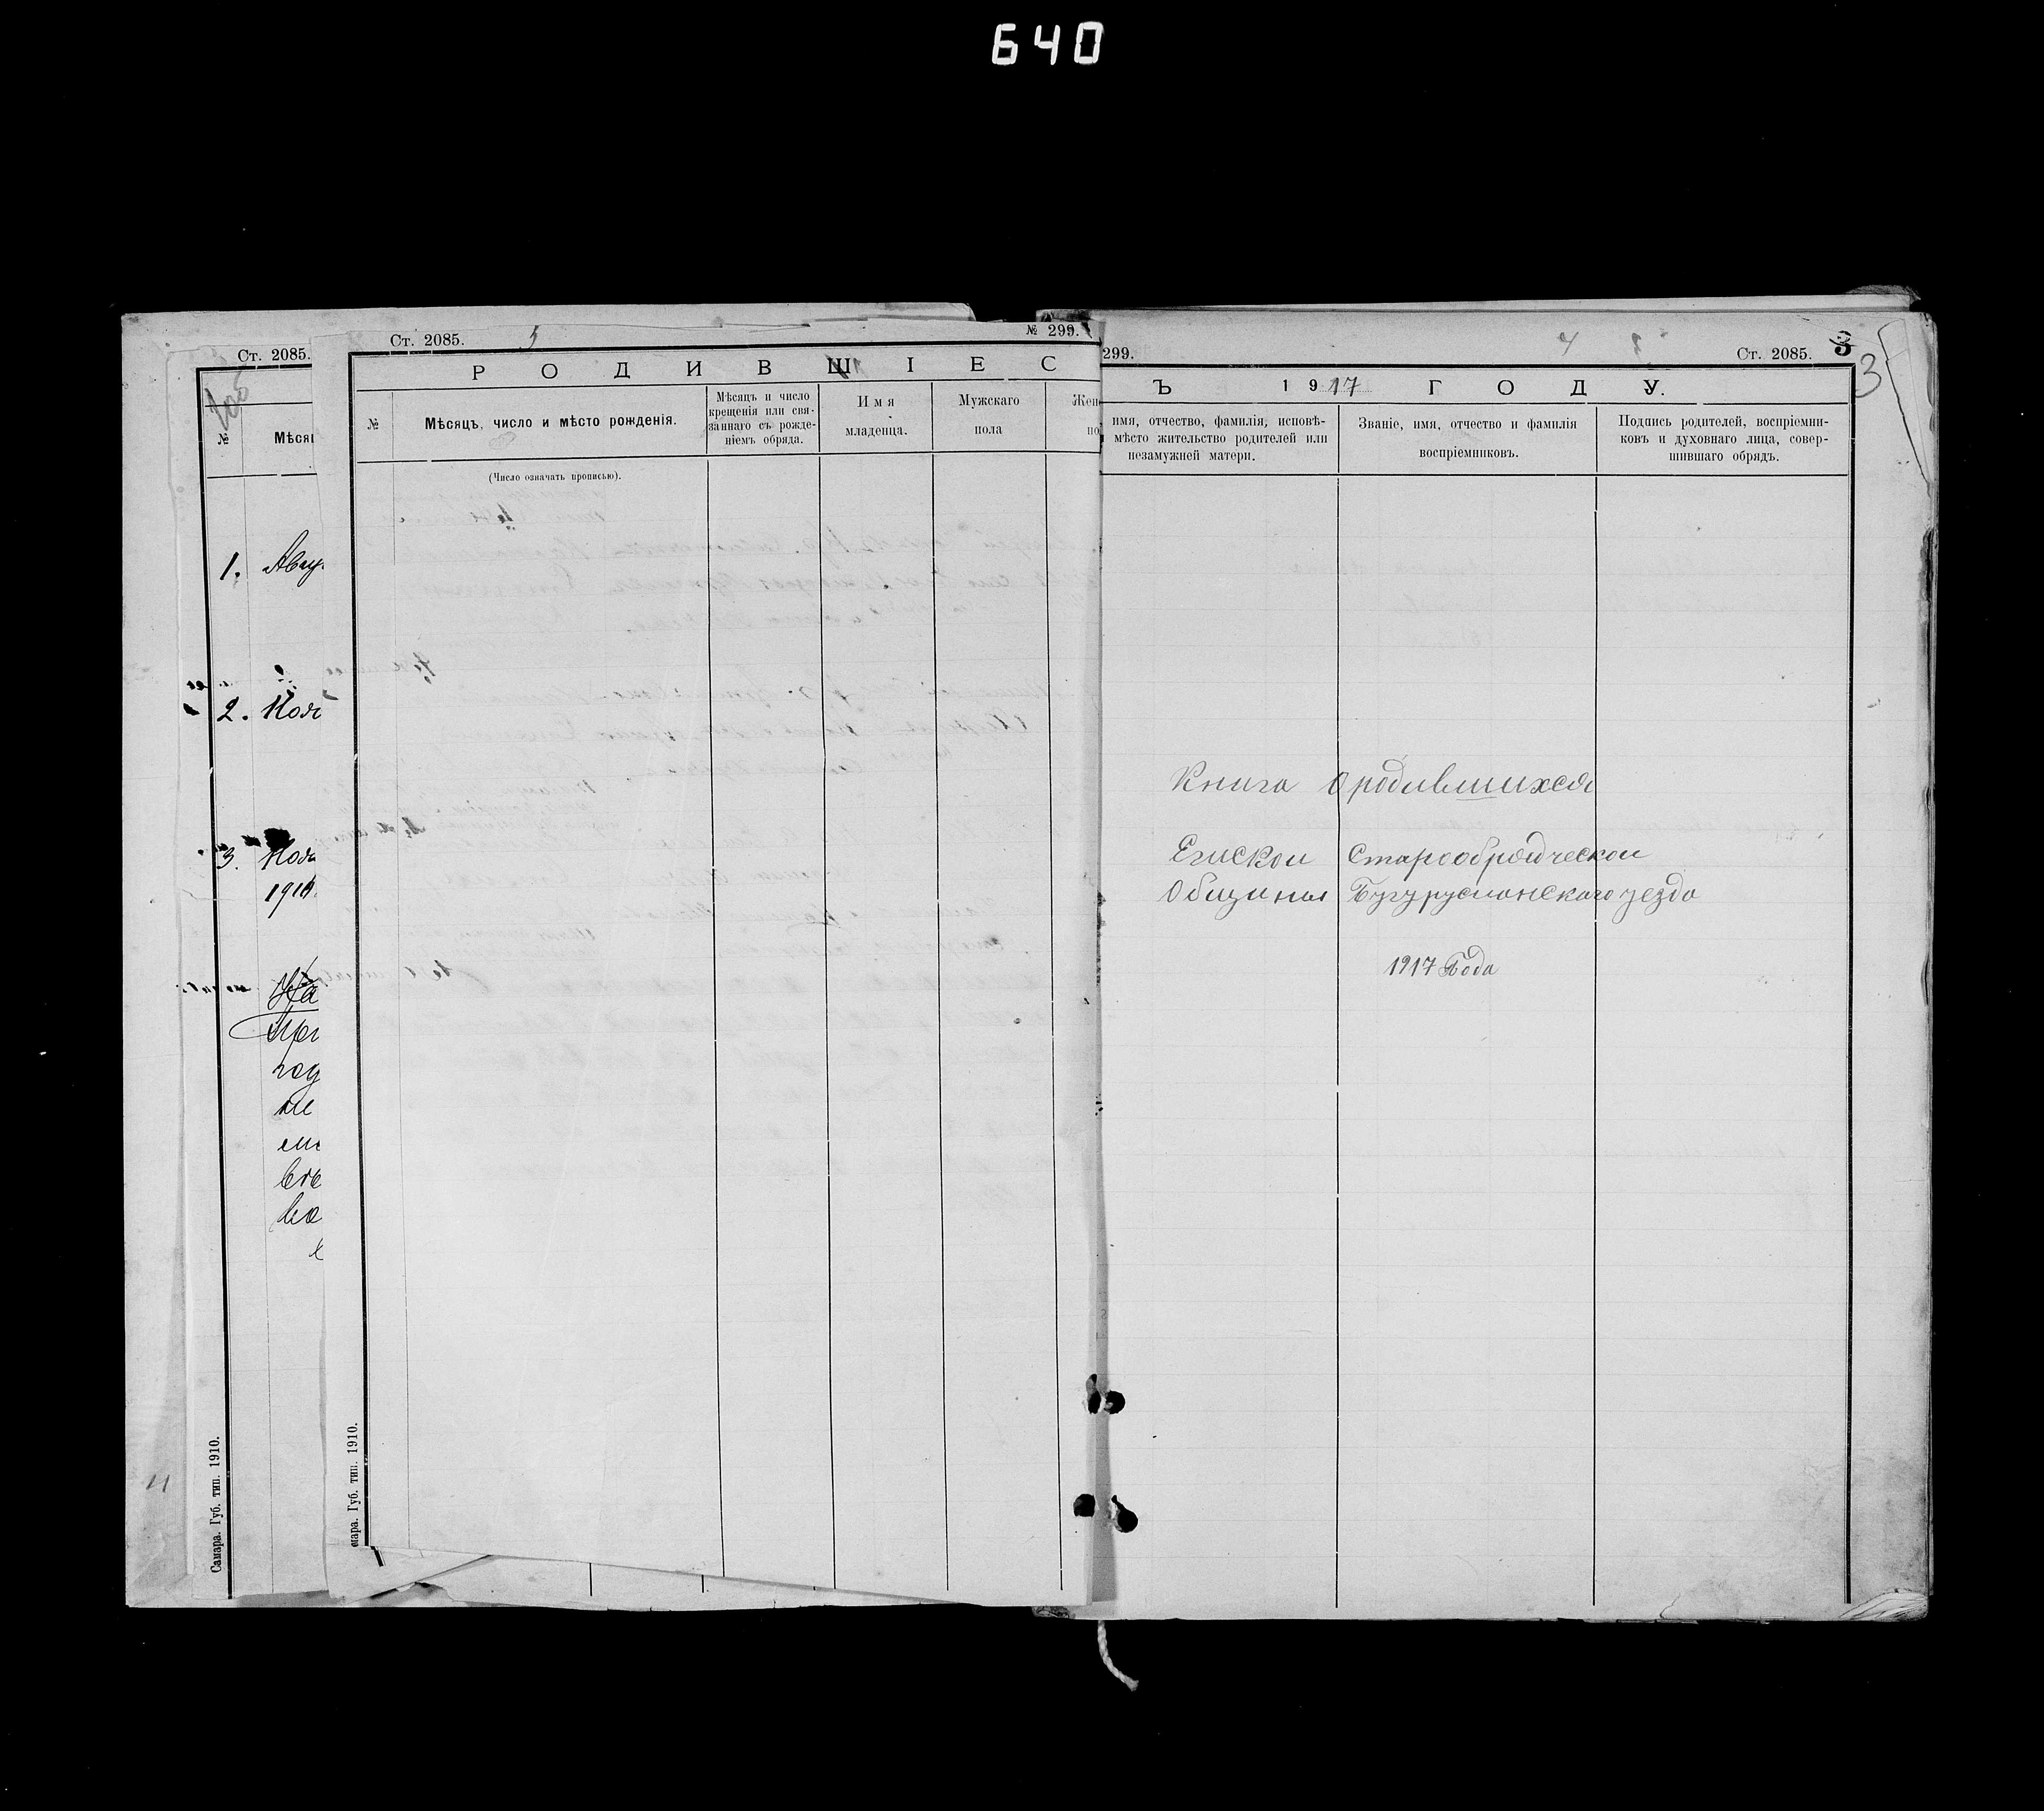 640
Ст. 2085.
№
Мѣсяц
1. Авгу
2. Ноя
3. Ноя
1910
На
При
год
не
ем
вѣ
во
Самара. Губ. тип. 1910.
Ст. 2085.
№ 299.
РОДИВШІЕС
№
Мѣсяцъ, число и мѣсто рожденія.
Мѣсяцъ и число
крещенія или свя-
заннаго съ рожде-
ніемъ обряда.
Имя
младенца.
Мужскаго
пола
Жен
по
(Число означать прописью).
мара. Губ. тип. 1910.
299.
Ст. 2085.
3
3
Ъ 1917 ГОДУ.
имя, отчество, фамилія, исповѣ-
мѣсто жительство родителей или
незамужней матери.
Званіе, имя, отчество и фамилія
воспріемниковъ.
Подпись родителей, воспріемни-
ковъ и духовнаго лица, совер-
шившаго обрядъ.
Книга о родившихся
Старообрядческои
Общины Бугурусланскаго уезда
1917 Года